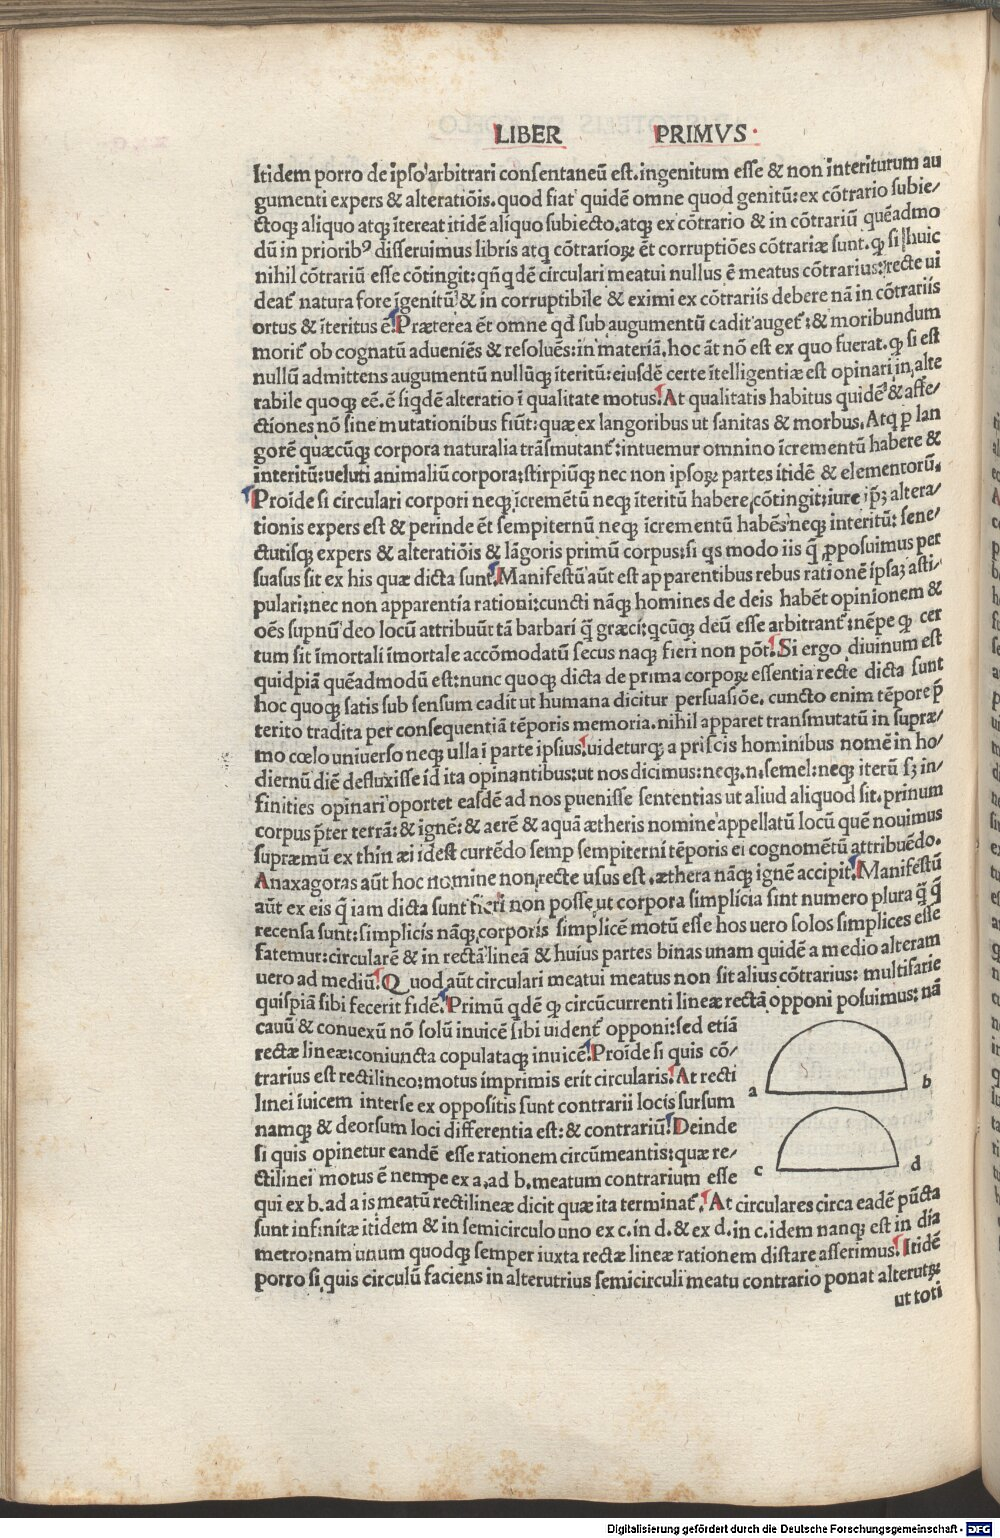 LIBER PRIMVS
Itidem porro de ipso arbitrari consentaneū est. ingenitum esse & non interiturum au
gumenti expers & alteratiōis. quod fiat quidē omne quod genitū: ex cōtrario subie/
ctoqꝫ aliquo atqꝫ itereat itidē aliquo subiecto. atqꝫ ex cōtrario & in cōtrariū quēadmo
dū in prioribꝰ disseruimus libris atq cōtrarioꝝ ēt corruptiōes cōtrariæ sunt. ꝙ si huic
nihil cōtrariū esse cōtingit: qñqdē circulari meatui nullus ē meatus cōtrarius: recte ui
deat natura fore īgenitū & in corruptibile & eximi ex cōtrariis debere nā in cōtrariis
ortus & īteritus ē. Præterea ēt omne qd sub augumentū cadit auget: & moribundum
morit ob cognatū adueniēs & resoluēs: in materiā. hoc āt nō est ex quo fuerat. ꝙ si est
nullū admittens augumentū nullūqꝫ īteritū: eiusdē certe ītelligentiæ est opinari in alte
rabile quoqꝫ eē. ē siqdē alteratio ī qualitate motus. At qualitatis habitus quidē & affe/
ctiones nō sine mutationibus fiūt: quæ ex langoribus ut sanitas & morbus. Atq ꝑ lan
gorē quæcūqꝫ corpora naturalia trāsmutant: intuemur omnino īcrementū habere &
interitū: ueluti animaliū corpora: stirpiūqꝫ nec non ipsoꝝ partes itidē & elementorū.
Proīde si circulari corpori neqꝫ īcremētū neqꝫ īteritū habere cōtingit: iure ip̄ꝫ altera/
tionis expers est & perinde ēt sempiternū neqꝫ icrementū habēs neqꝫ interitū: sene/
ctutisqꝫ expers & alteratiōis & lāgoris primū corpus: si qs modo iis q̄ ꝓposuimus per
suasus sit ex his quæ dicta sunt. Manifestū aūt est apparentibus rebus rationē ipsaꝫ asti/
pulari: nec non apparentia rationi: cuncti nāqꝫ homines de deis habēt opinionem &
oēs supnū deo locū attribuūt tā barbari q̄ græci: qcūqꝫ deū esse arbitrant: nēpe ꝙ cer
tum sit īmortali īmortale accōmodatū secus naqꝫ fieri non pōt. Si ergo diuinum est
quidpiā quēadmodū est: nunc quoqꝫ dicta de prima corpoꝝ essentia recte dicta sunt
hoc quoqꝫ satis sub sensum cadit ut humana dicitur persuasiōe. cuncto enim tēpore p̄
terito tradita per consequentiā tēporis memoria. nihil apparet transmutatū in supræ/
mo cœlo uniuerso neqꝫ ulla ī parte ipsius. uideturqꝫ a priscis hominibus nomē in ho/
diernū diē defluxisse id ita opinantibus: ut nos dicimus: neqꝫ .n. semel: neqꝫ iterū sꝫ in/
finities opinari oportet easdē ad nos puenisse sententias ut aliud aliquod sit. prinum
corpus p̄ter terrā: & ignē: & aerē & aquā ætheris nomine appellatū locū quē nouimus
supræmū ex thin æi idest currēdo semp sempiterni tēporis ei cognomētū attribuēdo.
Anaxagoras aūt hoc nomine non recte usus est. æthera nāqꝫ ignē accipit. Manifestū
aūt ex eis q̄ iam dicta sunt fieri non posse ut corpora simplicia sint numero plura q̄ q̄
recensa sunt: simplicis nāqꝫ corporis simplicē motū esse hos uero solos simplices esse
fatemur: circularē & in rectā lineā & huius partes binas unam quidē a medio alteram
uero ad mediū. Quod aūt circulari meatui meatus non sit alius cōtrarius: multifarie
quispiā sibi fecerit fidē. Primū qdē ꝙ circūcurrenti lineæ rectā opponi posuimus: nā
cauū & conuexū nō solū inuicē sibi uident opponi: sed etiā
rectæ lineæ: coniuncta copulataqꝫ inuicē. Proīde si quis cō/
trarius est rectilineo: motus imprimis erit circularis. At recti
linei iuicem interse ex oppositis sunt contrarii locis sursum
namqꝫ & deorsum loci differentia est: & contrariū. Deinde
si quis opinetur eandē esse rationem circūmeantis: quæ re/
ctilinei motus ē nempe ex a. ad b. meatum contrarium esse
qui ex b. ad a is meatū rectilineæ dicit quæ ita terminat. At circulares circa eadē pūcta
sunt infinitæ itidem & in semicirculo uno ex c. in d. & ex d. in c. idem nanqꝫ est in dia
metro: nam unum quodqꝫ semper iuxta rectæ lineæ rationem distare asserimus. Itidē
porro si quis circulū faciens in alterutrius semicirculi meatu contrario ponat alterutꝝ
ut toti
a b
c d
Digitalisierung gefördert durch die Deutsche Forschungsgemeinschaft - DFG